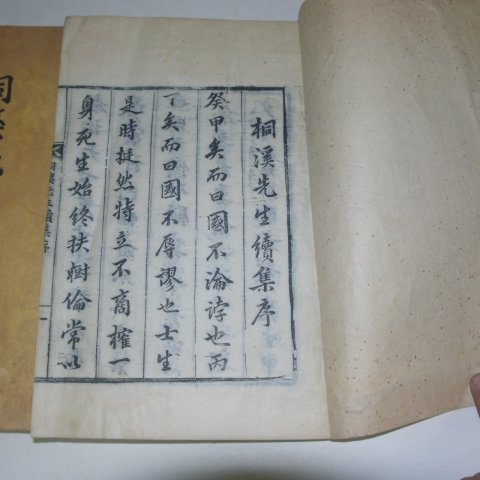 桐溪先生續集序
癸甲矣而曰國不淪誖也丙
丁矣而曰國不辱謬也士生
是時挺然特立不啇搉一
身死生始終扶樹倫常以
桐溪先生續集序